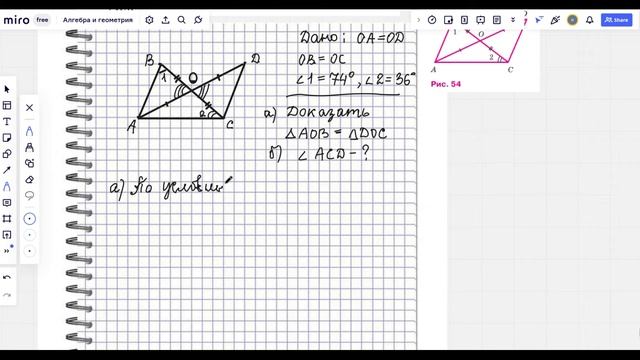 miro free Алгебра и геометрия
Share
Дано: OA=OD
OB=OC
∠1=74°, ∠2=36°
а) Доказать
△AOB=△DOC
б) ∠ACD-?
B
D
1
O
2
A
C
а) По услови
1
O
2
A
C
Рис. 54